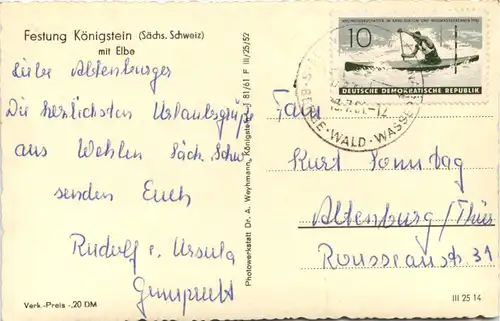 Festung Königstein (Sächs. Schweiz)
mit Elbe
Liebe Altenburger
Die herzlichsten Urlaubsgrüße
aus Wehlen Säch. Schw.
senden Euch
Rudolf u. Ursula
Verk.-Preis -,20 DM
Photowerkstatt Dr. A. Weyhmann, Königstein L-J 81/61 F III/25/52
10
DEUTSCHE DEMOKRATISCHE REPUBLIK
WALD · WASSER
Fam
Kurt Sonntag
Altenburg/Thür
Rousseaustr. 31
III 25 14